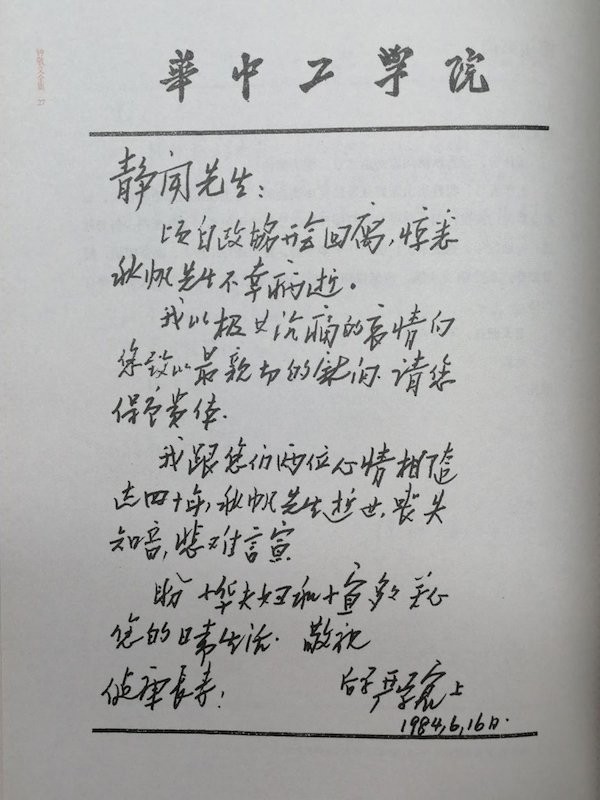 華中工学院
静闻先生：
顷自政协开会回寓，惊悉
秋帆先生不幸病逝。
我以极其沉痛的哀情向
您致以最亲切的慰问. 请您
保重贵体.
我跟您们两位心情相随
达四十年，秋帆先生逝世，丧失
知音，悲难言宣
盼 华夫妇和 宣多多关心
您的日常生活. 敬祝
健康長寿！
严学宭上
1984,6,16日.
钟敬文全集 27